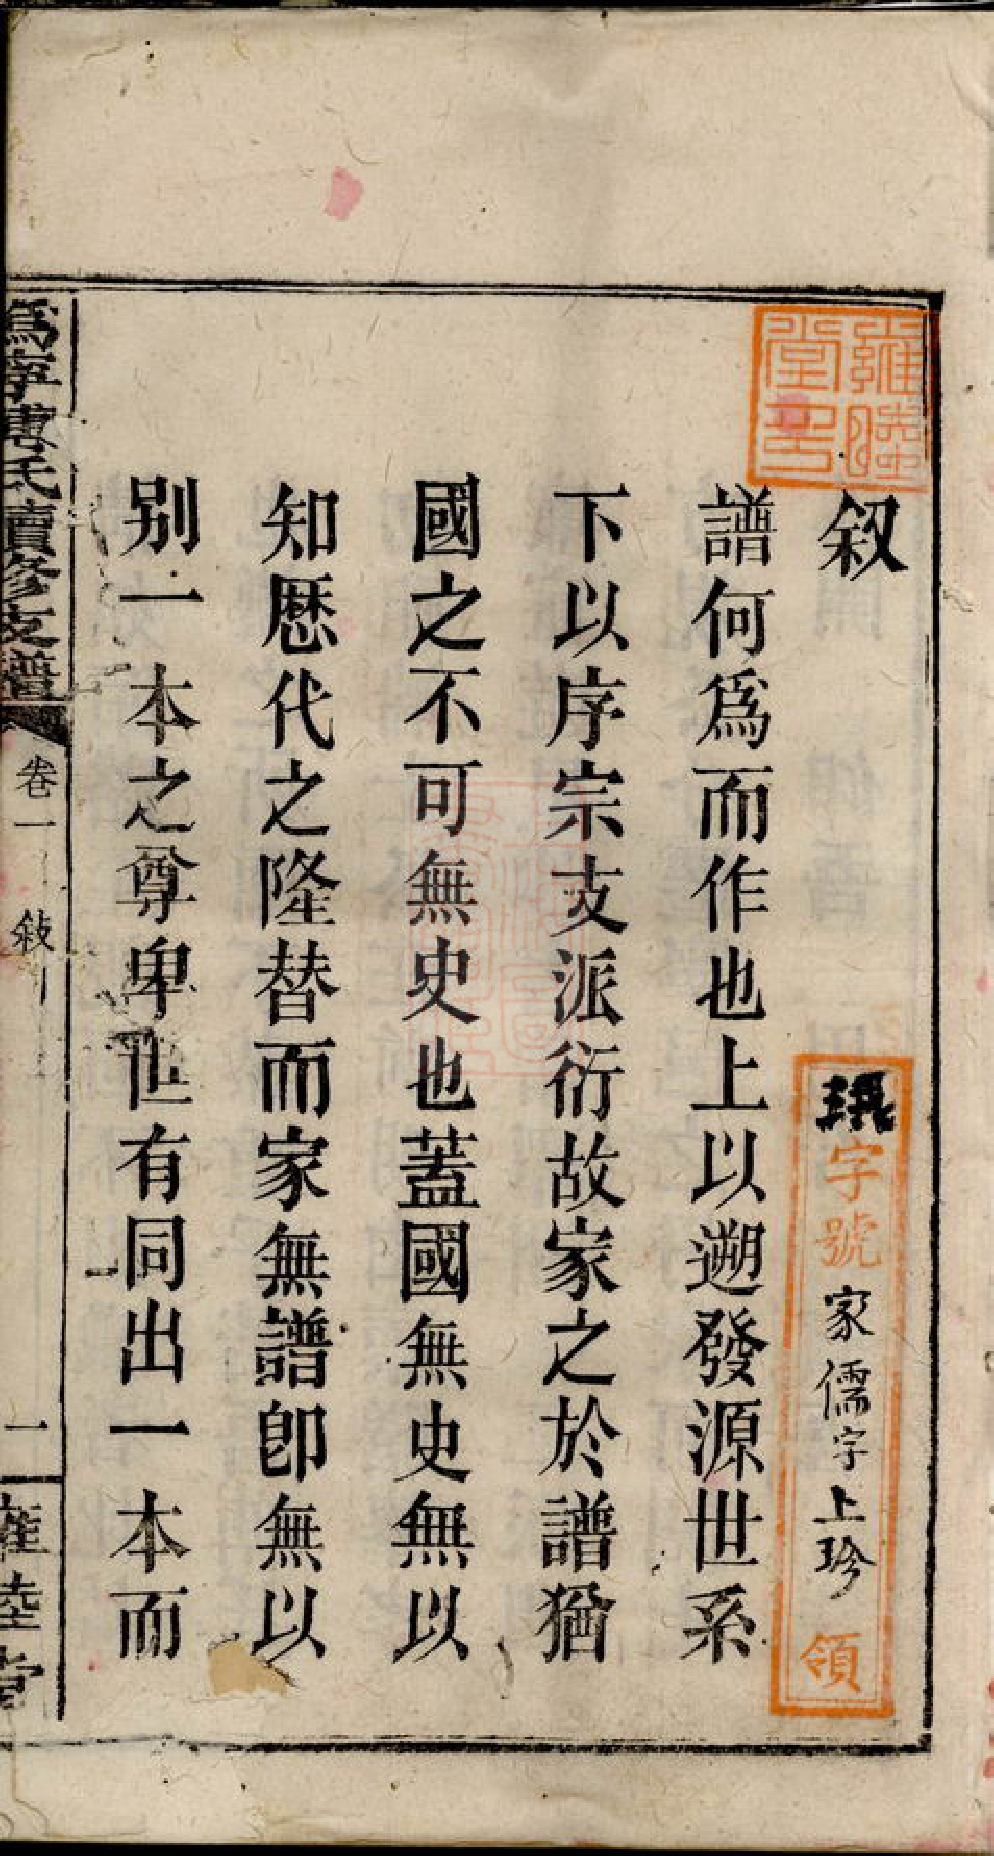 雍睦堂印
叙
字號
家儒字上珍
領
譜何爲而作也上以遡發源世系
下以序宗支派衍故家之於譜猶
國之不可無史也蓋國無史無以
知歷代之隆替而家無譜卽無以
别一本之尊卑世有同出一本而
爲寧唐氏續修支譜
卷一
敍
一
雍睦堂